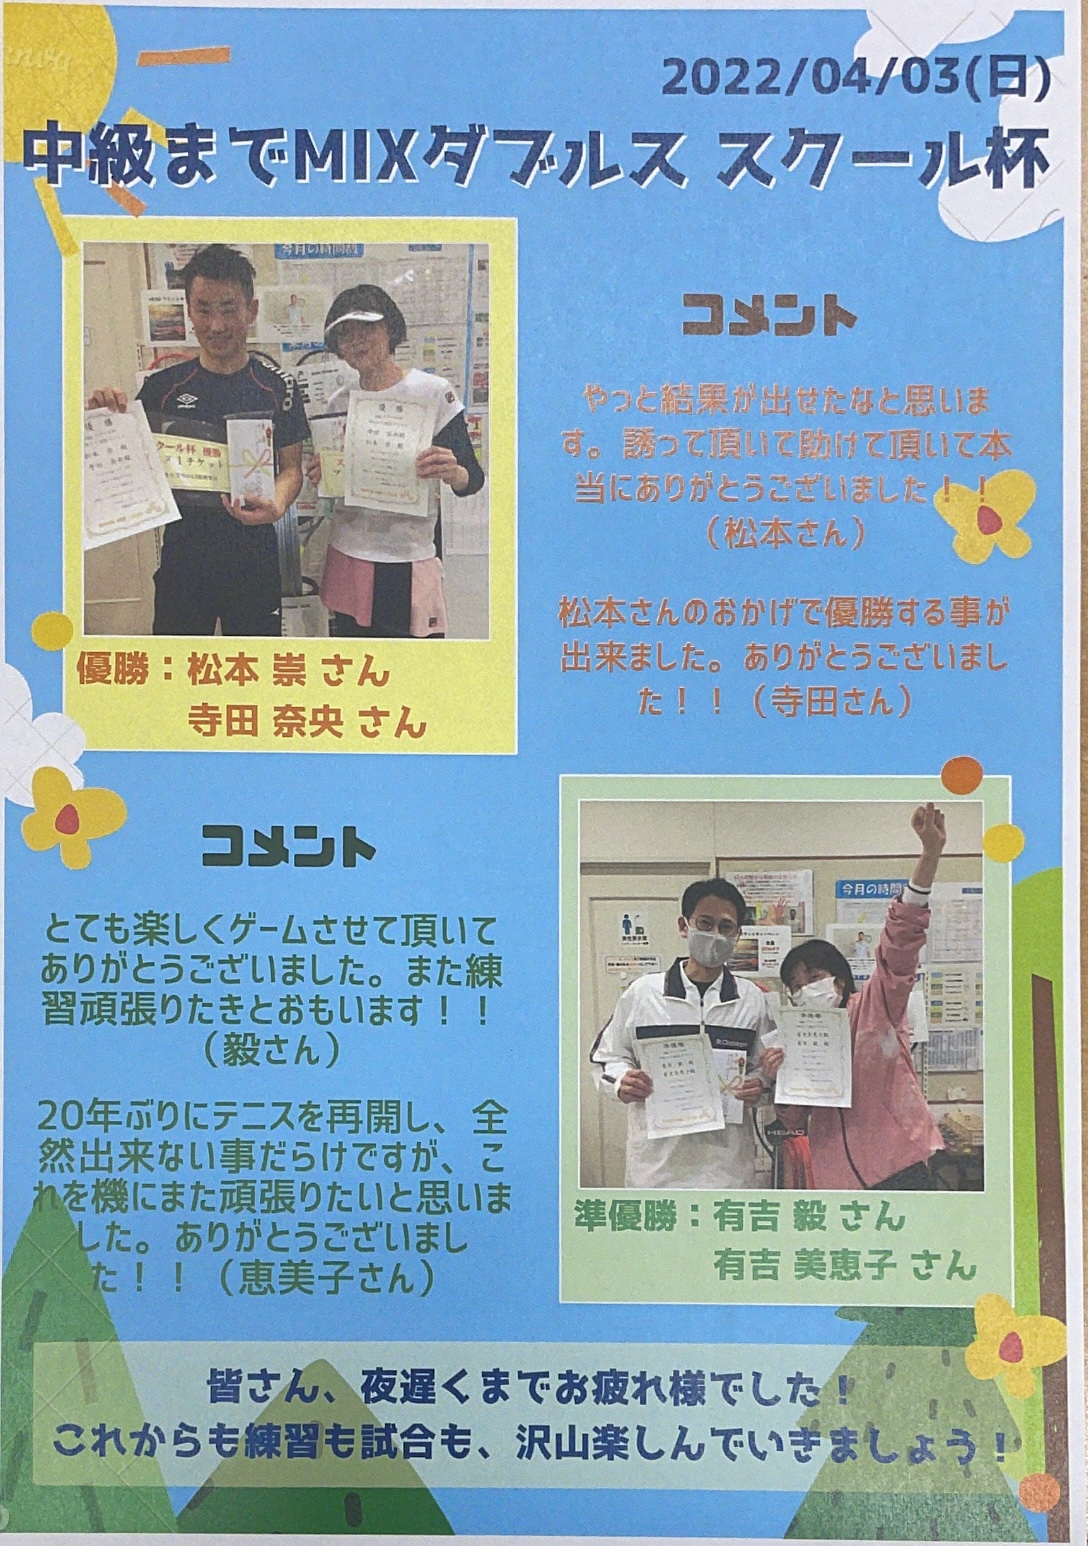 2022/04/03(日)
中級までMIXダブルス スクール杯
今月の時間割
優勝
優勝
クール杯 優勝
コメント
やっと結果が出せたなと思いま
す。誘って頂いて助けて頂いて本
当にありがとうございました！！
（松本さん）
松本さんのおかげで優勝する事が
出来ました。ありがとうございまし
た！！（寺田さん）
優勝：松本 崇 さん
寺田 奈央 さん
コメント
とても楽しくゲームさせて頂いて
ありがとうございました。また練
習頑張りたきとおもいます！！
（毅さん）
20年ぶりにテニスを再開し、全
然出来ない事だらけですが、こ
れを機にまた頑張りたいと思いま
した。ありがとうございまし
た！！（恵美子さん）
今月の時間
準優勝
準優勝
HEAD
準優勝：有吉 毅 さん
有吉 美恵子 さん
皆さん、夜遅くまでお疲れ様でした！
これからも練習も試合も、沢山楽しんでいきましょう！